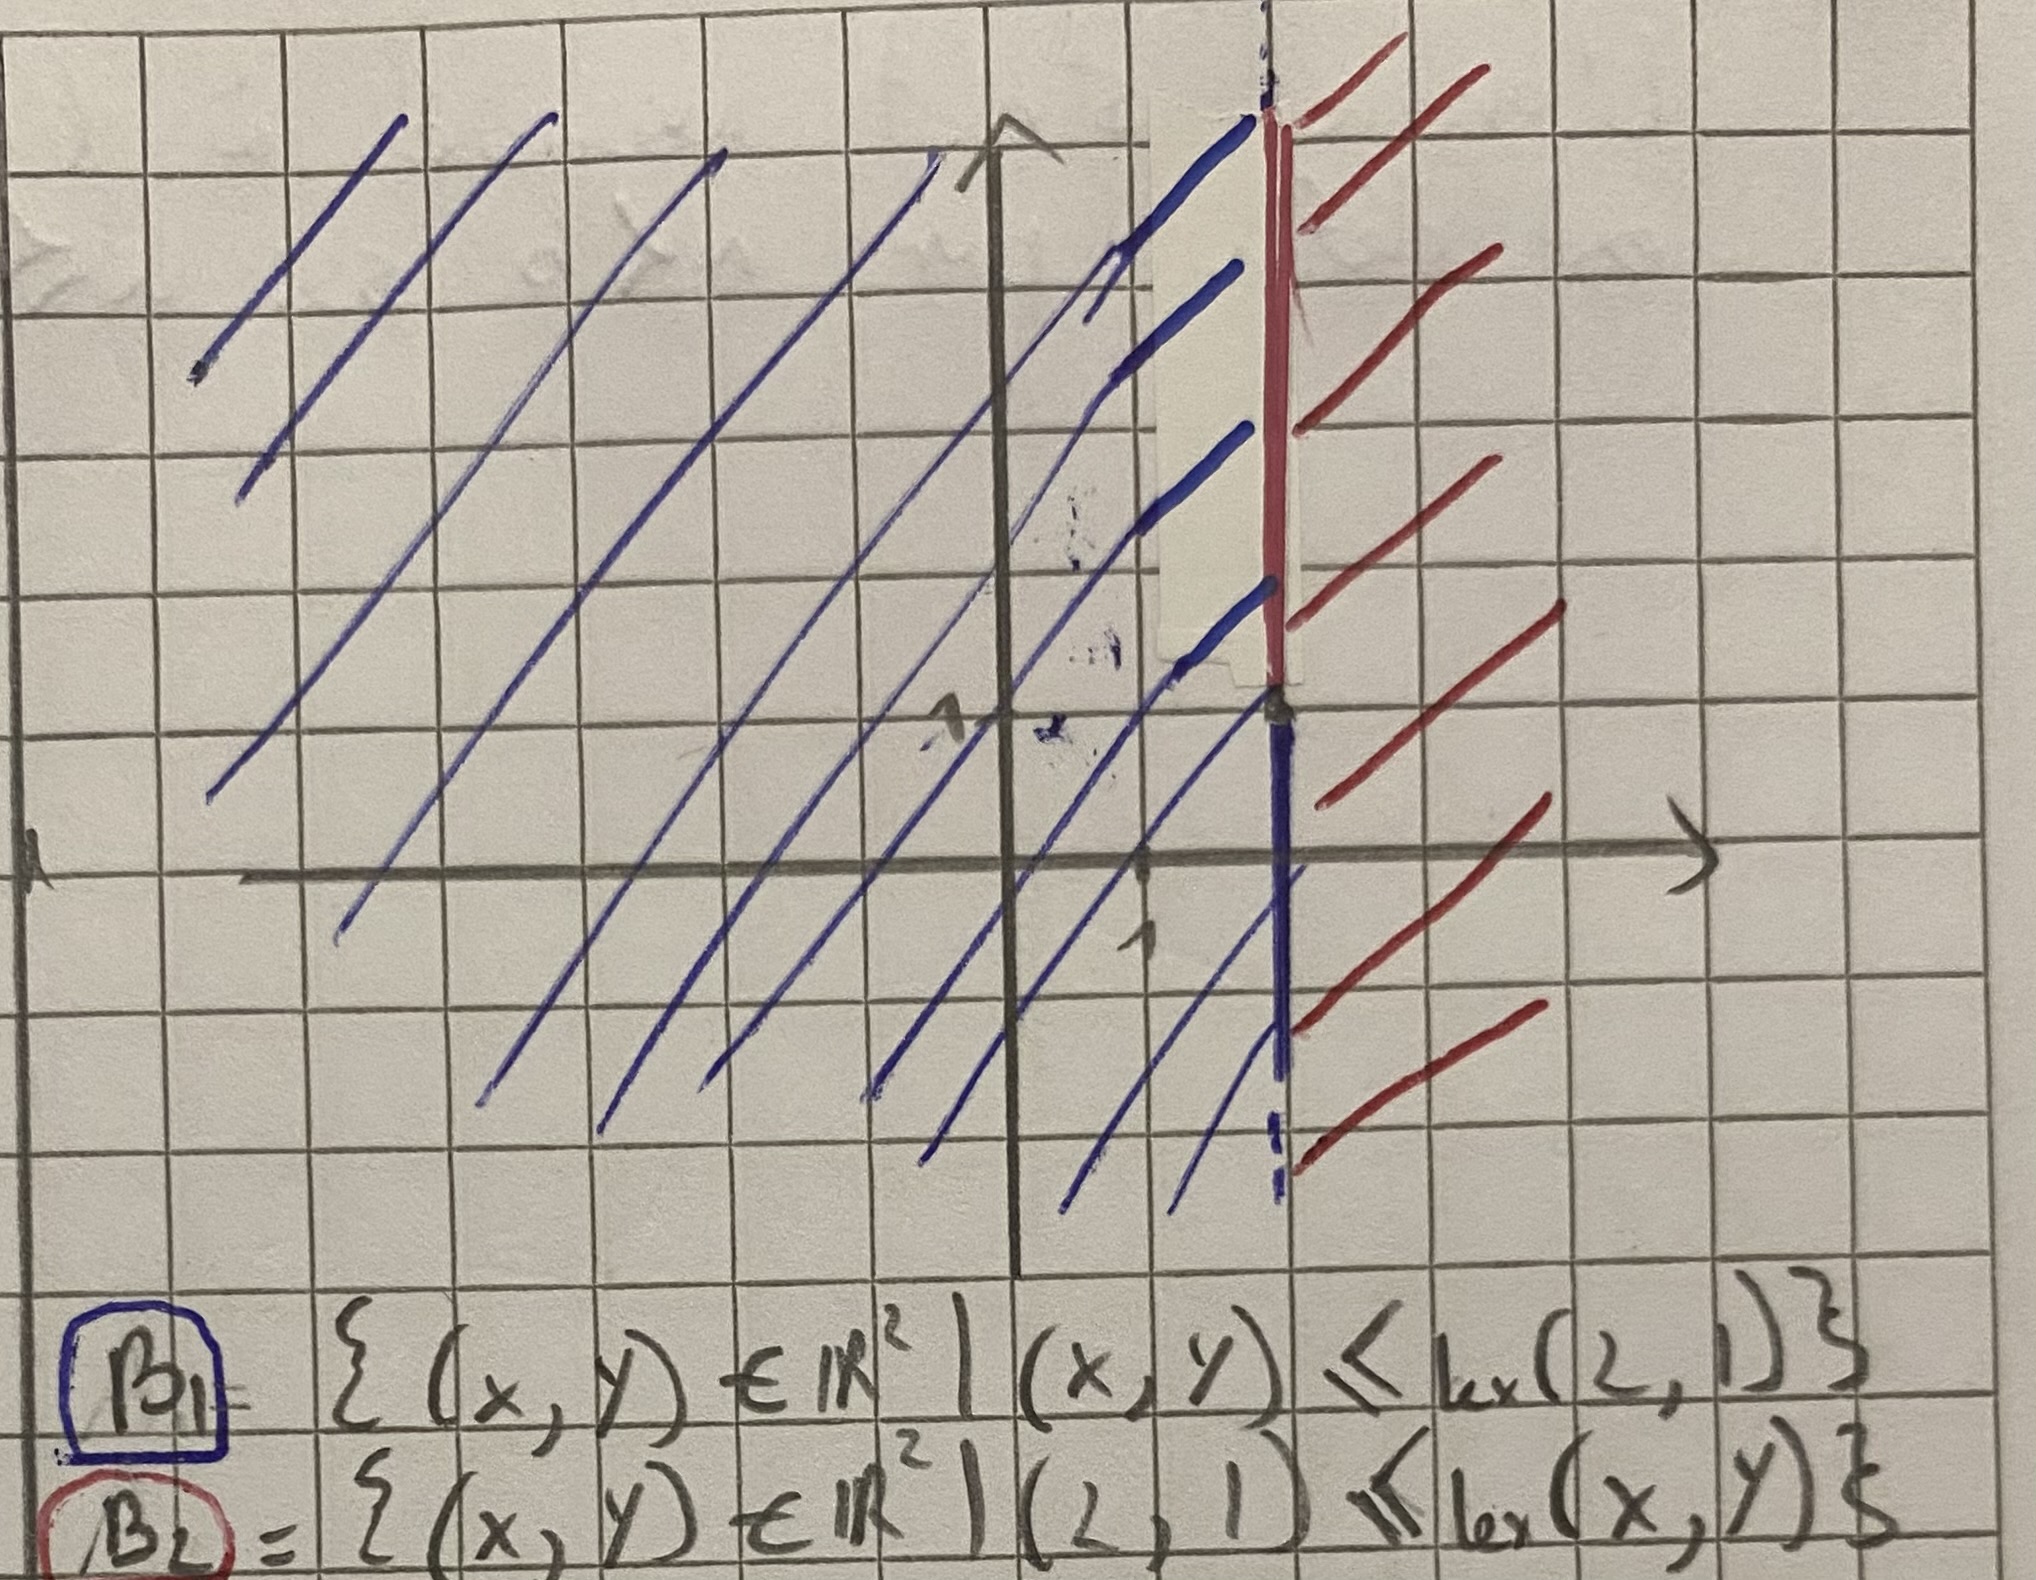 1
1
B₁ = { (x, y) ∈ ℝ² | (x, y) ⩽ lex (2, 1) }
B₂ = { (x, y) ∈ ℝ² | (2, 1) ⩽ lex (x, y) }